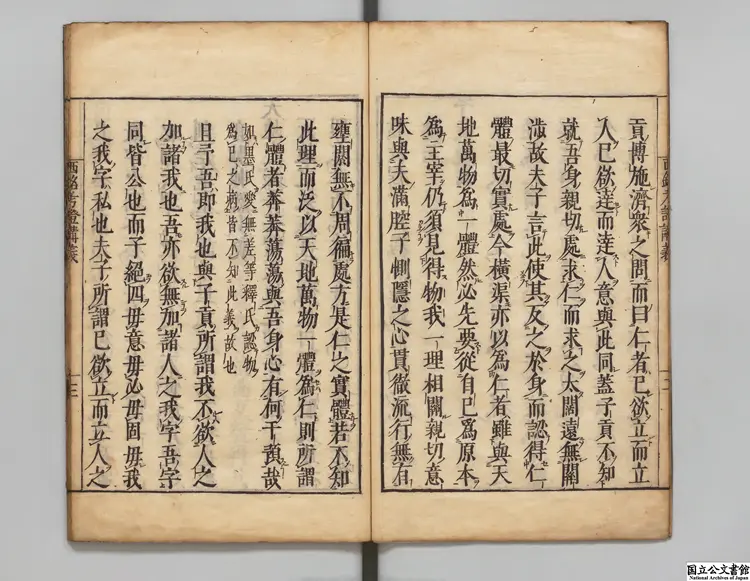 貢博施濟衆之問而曰仁者已欲立而立
人已欲達而達人意與此同蓋子貢不知
就吾身親切處求仁而求之太闊遠無關
涉故夫子言此使其反之於身而認得仁
體最切實處今橫渠亦以爲仁者雖與天
地萬物爲一體然必先要從自已爲原本
爲主宰仍須見得物我一理相關親切意
味與夫滿腔子惻隱之心貫徹流行無有
壅閼無不周徧處方是仁之實體若不知
此理而泛以天地萬物一體爲仁則所謂
仁體者莽莽蕩蕩與吾身心有何干預哉
如墨氏愛無差等釋氏認物
爲已之病皆不知此義故也
且予吾即我也與子貢所謂我不欲人之
加諸我也吾亦欲無加諸人之我字吾字
同皆公也而子絕四毋意毋必毋固毋我
之我字私也夫子所謂已欲立而立人之
西銘考證講義
三
国立公文書館
National Archives of Japan